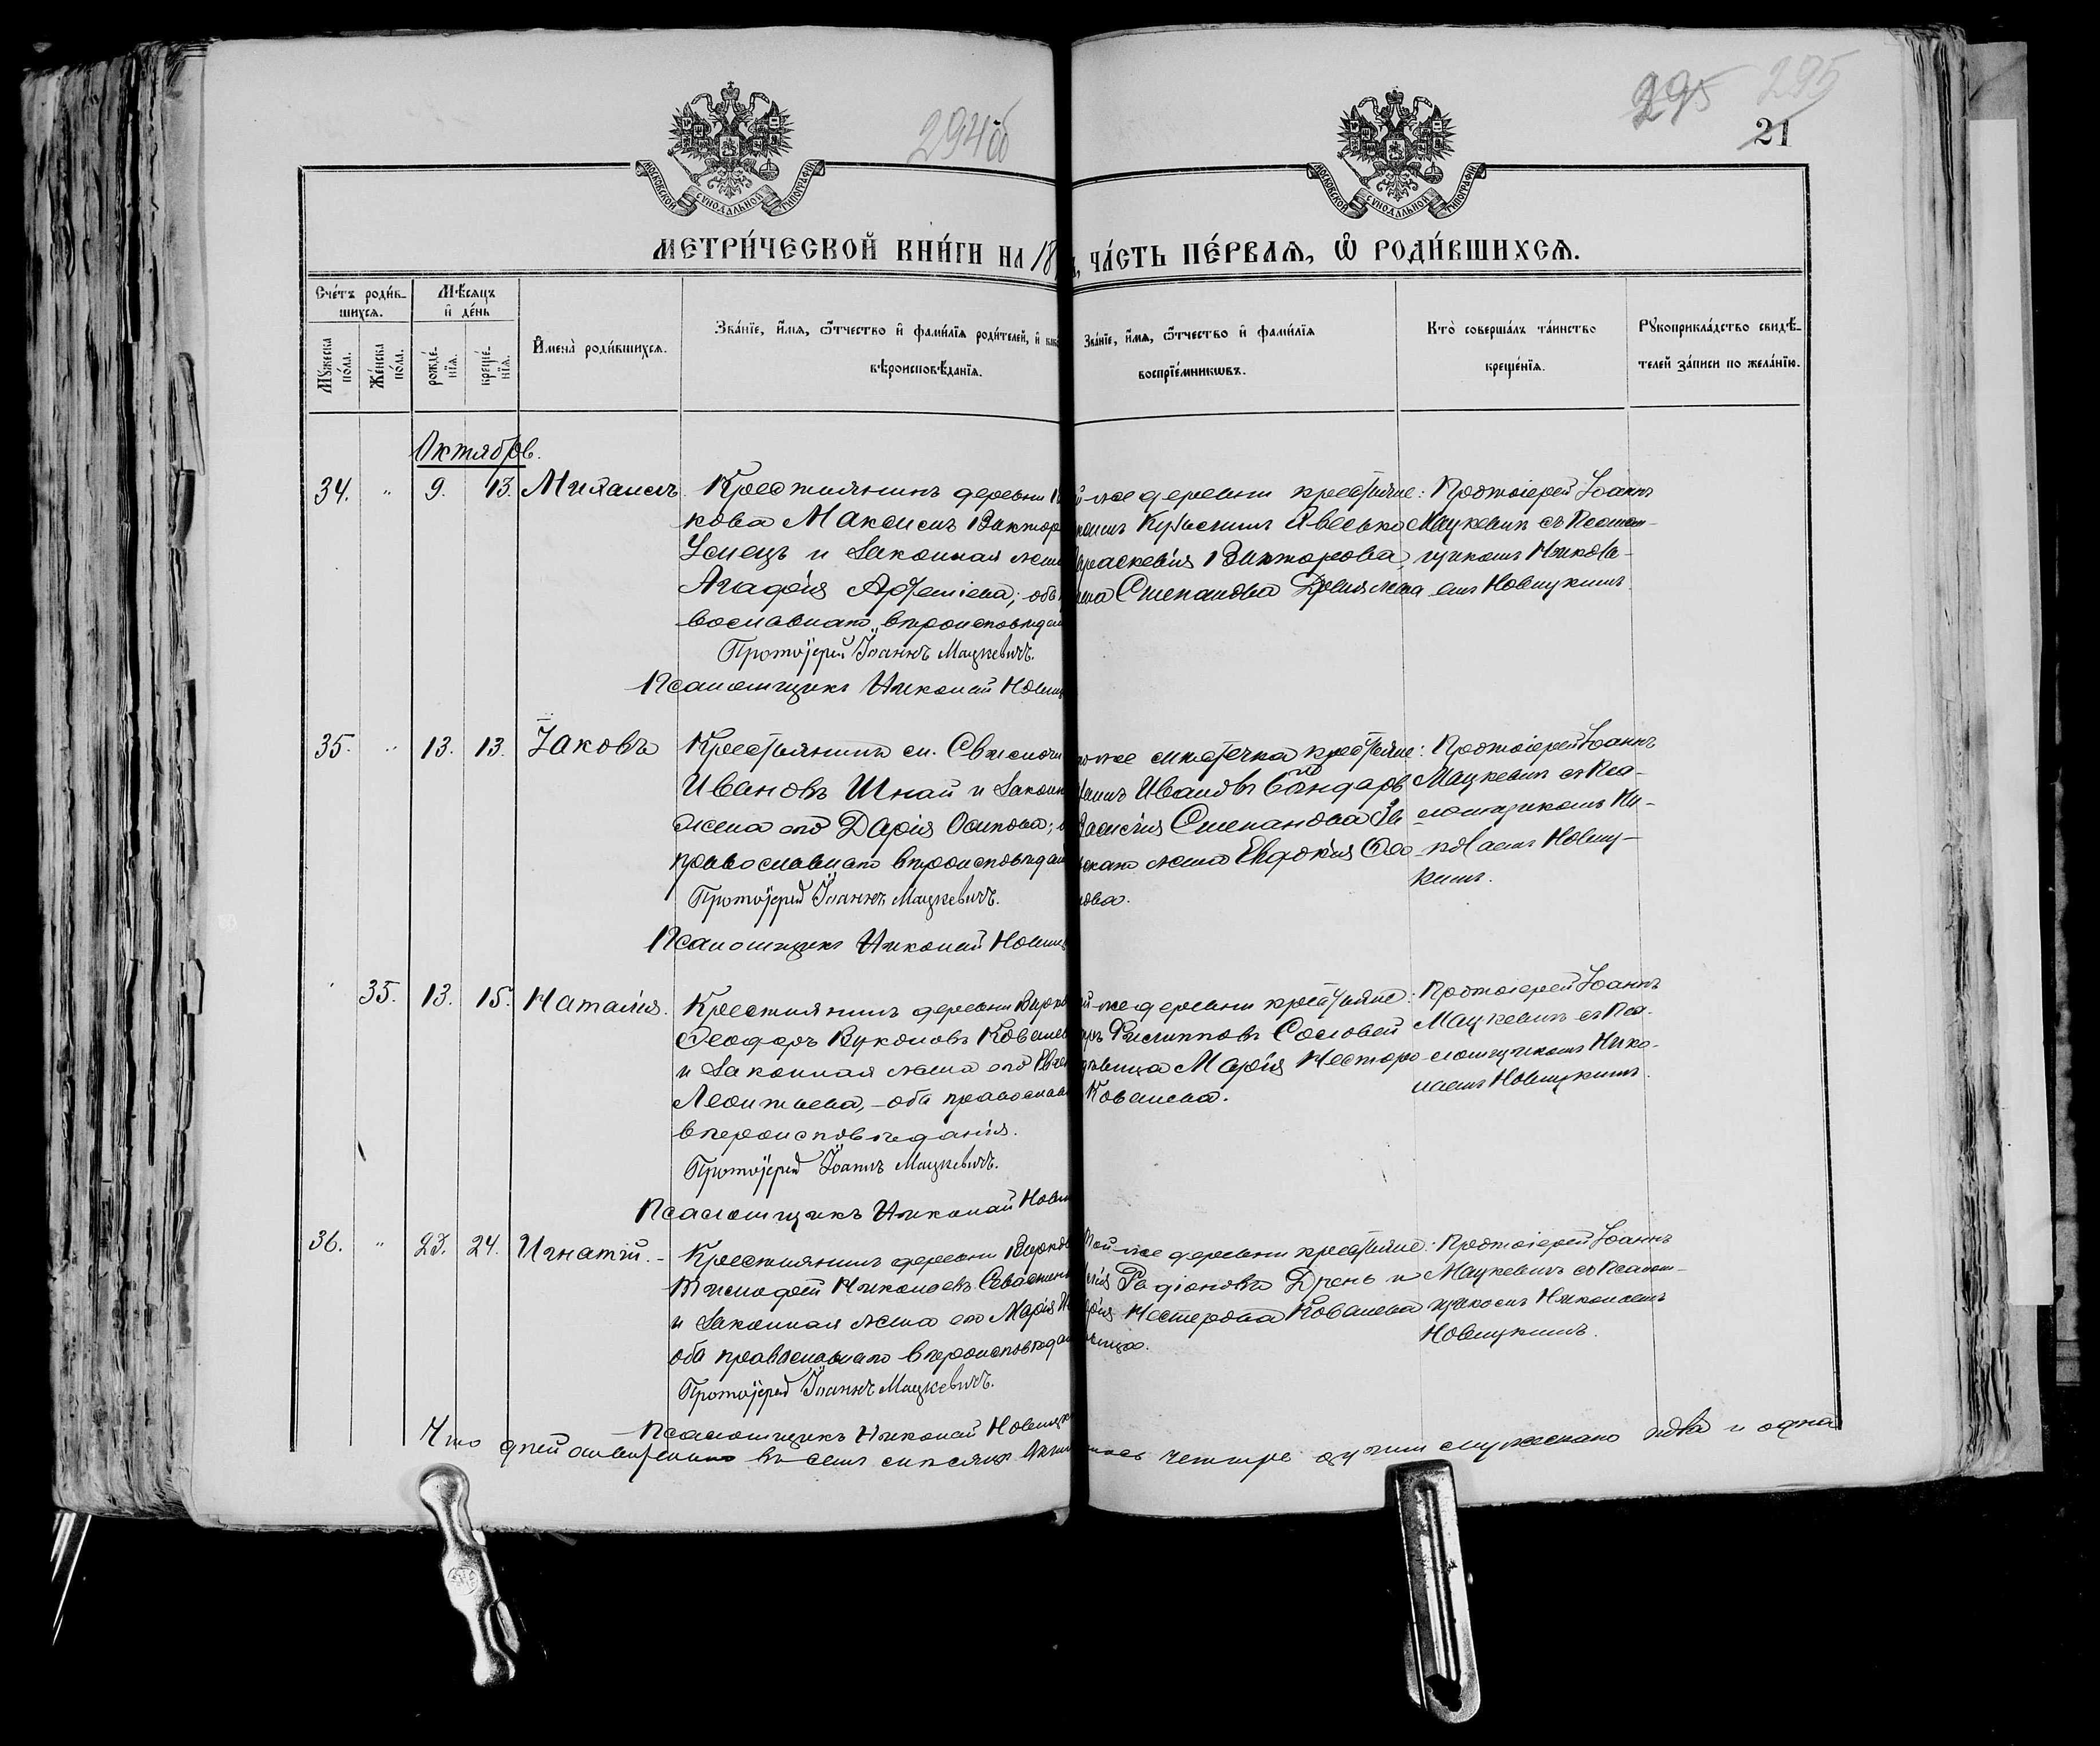 294об
295 295
21
МОСКОВСКОЙ СУНОДАЛЬНОЙ ТИПОГРАФІИ
МОСКОВСКОЙ СУНОДАЛЬНОЙ ТИПОГРАФІИ
МЕТРИ́ЧЕСКОЙ КНИ́ГИ НА 18
ЧА́СТЬ ПЕ́РВАѦ, Ѡ҆ РОДИ́ВШИХСѦ.
Сче́тъ роди́в-
шихсѧ.
Мѣ́сѧцъ
и҆ де́нь
Мꙋ́жеска по́ла.
Же́нска по́ла.
рожде́-
нїѧ.
креще́-
нїѧ.
И҆мена̀ роди́вшихсѧ.
Зва́нїе, и҆́мѧ, ѻ҆́тчество и҆ фами́лїѧ роди́телей, и҆
вѣроисповѣ́данїѧ.
Зва́нїе, и҆́мѧ, ѻ҆́тчество и҆ фами́лїѧ
воспрїе́мникѡвъ.
Кто̀ соверша́лъ та́инство
креще́нїѧ.
Рꙋкоприкла́дство свидѣ́-
телей за́писи по жела́нїю.
Октябрь.
34. " 9. 13. Михаилъ.
Крестьянинъ деревни
кова Максимъ Виктор
Усецъ и законная жен
Агафія Артеміева; оба
вославнаго вѣроисповѣдан
Протоіерей Іоаннъ Мацкевичъ.
Псаломщикъ Николай Новиц
й-же деревни крестьяне:
Параскевія Викторова,
Степанова
Протоіерей Іоаннъ
Мацкевичъ съ Псалом-
щикомъ Никола-
емъ Новицкимъ.
35. " 13. 13. Іаковъ
Крестьянинъ м. Свислочи
Ивановъ Шнай и закон
жена его Дарія Осипова;
православнаго вѣроисповѣдан
Протоіерей Іоаннъ Мацкевичъ.
Псаломщикъ Николай Новиц
го-же мѣстечка крестьяне:
Ивановъ Бондарь
Степанова
скаго жена Евдокія Ѳео
Протоіерей Іоаннъ
Мацкевичъ съ Пса-
ломщикомъ Ни-
колаемъ Новиц-
кимъ.
35. 13. 15. Наталія.
Крестьянинъ деревни Вирко
Ѳеодоръ Вуколовъ Ковалев
и законная жена его Евген
Леонтьева,-оба православ
вѣроисповѣданія.
Протоіерей Іоаннъ Мацкевичъ.
Псаломщикъ Николай Новиц
й-же деревни крестьяне:
Филипповъ Соловей
дѣвица Марія Несторо
Ковалева.
Протоіерей Іоаннъ
Мацкевичъ съ Пса-
ломщикомъ Нико-
лаемъ Новицкимъ.
36. " 23. 24. Игнатій.-
Крестьянинъ деревни Вирков
Тимофей Николаевъ Севастьян
и законная жена его Марія
оба православнаго вѣроисповѣдан
Протоіерей Іоаннъ Мацкевичъ.
Псаломщикъ Николай Новицк
Той-же деревни крестьяне:
Радіоновъ Дзень и
Нестерова Ковалева
вица.
Протоіерей Іоаннъ
Мацкевичъ съ Псалом-
щикомъ Николаемъ
Новицкимъ.
Что дѣйствительно въ семъ мѣсяцѣ
четыре души мужескаго пола и одна